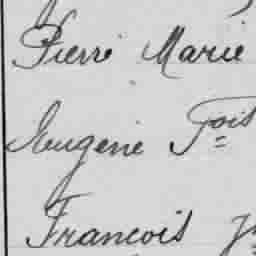 Pierre Marie
Eugène Fois
François J